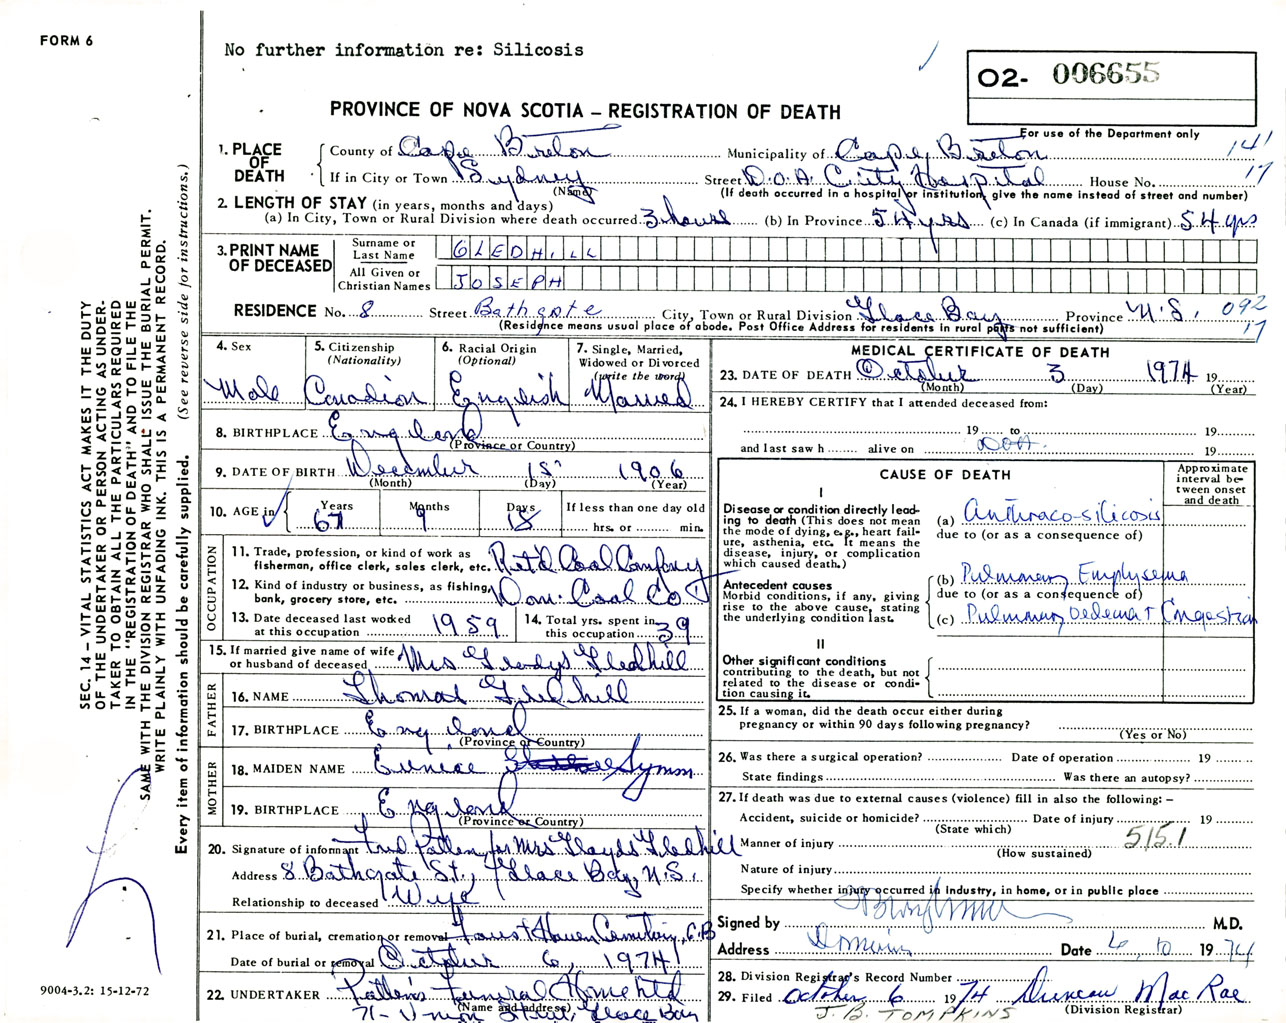 FORM 6
No further information re: Silicosis
O2- 006655
PROVINCE OF NOVA SCOTIA – REGISTRATION OF DEATH
For use of the Department only
1. PLACE OF DEATH
County of Cape Breton Municipality of Cape Breton 141
If in City or Town Sydney Street D.O.A. City Hospital House No. 17
(Name) (If death occurred in a hospital or institution, give the name instead of street and number)
2. LENGTH OF STAY (in years, months and days)
(a) In City, Town or Rural Division where death occurred 3 hours (b) In Province 54 yrs (c) In Canada (if immigrant) 54 yrs
3. PRINT NAME OF DECEASED
Surname or Last Name GLEDHILL
All Given or Christian Names JOSEPH
RESIDENCE No. 8 Street Bathgate City, Town or Rural Division Glace Bay Province N.S. 092
(Residence means usual place of abode. Post Office Address for residents in rural parts not sufficient) 17
4. Sex Male
5. Citizenship (Nationality) Canadian
6. Racial Origin (Optional) English
7. Single, Married, Widowed or Divorced (write the word) Married
8. BIRTHPLACE England
(Province or Country)
9. DATE OF BIRTH December 15 1906
(Month) (Day) (Year)
10. AGE in Years 67 Months 9 Days 18 If less than one day old hrs. or min.
OCCUPATION
11. Trade, profession, or kind of work as fisherman, office clerk, sales clerk, etc. Ret'd Coal Company
12. Kind of industry or business, as fishing, bank, grocery store, etc. Dom. Coal Co
13. Date deceased last worked at this occupation 1959
14. Total yrs. spent in this occupation 39
15. If married give name of wife or husband of deceased Mrs Gladys Gledhill
FATHER
16. NAME Thomas Gledhill
17. BIRTHPLACE England
(Province or Country)
MOTHER
18. MAIDEN NAME Eunice Symm
19. BIRTHPLACE England
(Province or Country)
20. Signature of informant Fred Patten for Mrs Gladys Gledhill
Address 8 Bathgate St., Glace Bay, N.S.
Relationship to deceased Wife
21. Place of burial, cremation or removal Forest Haven Cemetery, C.B
Date of burial or removal October 6, 1974
22. UNDERTAKER Patten's Funeral Home Ltd
(Name and address)
71- Union Street Glace Bay
MEDICAL CERTIFICATE OF DEATH
23. DATE OF DEATH October 3 1974 19
(Month) (Day) (Year)
24. I HEREBY CERTIFY that I attended deceased from:
19 to 19
and last saw h alive on DOA 19
CAUSE OF DEATH
Approximate interval between onset and death
I
Disease or condition directly leading to death (This does not mean the mode of dying, e.g., heart failure, asthenia, etc. It means the disease, injury, or complication which caused death.)
(a) Anthraco-silicosis
due to (or as a consequence of)
Antecedent causes
Morbid conditions, if any, giving rise to the above cause, stating the underlying condition last.
(b) Pulmonary Emphysema
due to (or as a consequence of)
(c) Pulmonary oedema + Congestion
II
Other significant conditions
contributing to the death, but not related to the disease or condition causing it.
25. If a woman, did the death occur either during pregnancy or within 90 days following pregnancy?
(Yes or No)
26. Was there a surgical operation? Date of operation 19
State findings Was there an autopsy?
27. If death was due to external causes (violence) fill in also the following: –
Accident, suicide or homicide? Date of injury 19
(State which)
Manner of injury 515.1
(How sustained)
Nature of injury
Specify whether injury occurred in industry, in home, or in public place
Signed by M.D.
Address Dominion Date 6 10 1974
28. Division Registrar's Record Number
29. Filed October 6 1974 Duncan MacRae
(Division Registrar)
J. B. TOMPKINS
SEC. 14 – VITAL STATISTICS ACT MAKES IT THE DUTY
OF THE UNDERTAKER OR PERSON ACTING AS UNDER-
TAKER TO OBTAIN ALL THE PARTICULARS REQUIRED
IN THE "REGISTRATION OF DEATH" AND TO FILE THE
SAME WITH THE DIVISION REGISTRAR WHO SHALL ISSUE THE BURIAL PERMIT.
WRITE PLAINLY WITH UNFADING INK. THIS IS A PERMANENT RECORD.
Every item of information should be carefully supplied. (See reverse side for instructions.)
9004-3.2: 15-12-72